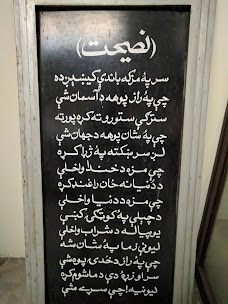 (نصيحت)
سر په مزکه باندې کيښږده
چې په راز پوهه د آسمان شې
سترګې ستورو ته کړه پورته
چې په نشان پوهه د جهان شې
لږ سر ښکته په ژړا کړه
چې مزه د خندا واخلې
د دنيا نه ځان راغنډ کړه
چې مزه د دنيا واخلې
د چپلې په کوټګۍ کښې
يو پياله د شراب واخلې
ليونې زما په شان شه
چې په راز د خدای پوه شې
سر او زړۀ دې دماشوم کړه
ليونيه! چې سړے شې